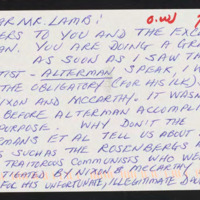 AR MR. LAMB: O.W
ERS TO YOU AND THE EXC
AN. YOU ARE DOING A GR
AS SOON AS I SAW TH
TIST - ALTERMAN SPEAK, I W
THE OBLIGATORY (FOR HIS ILK)
NIXON AND MCCARTHY. IT WASN
BEFORE ALTERMAN ACCOMPLI
PURPOSE. WHY DON'T THE
EMANS ET AL TELL US ABOUT
S SUCH AS THE ROSENBERGS A
TRAITOROUS COMMUNISTS WHO WE
TIGATED BY NIXON & MCCARTHY
FOR HIS UNFORTUNATE, ILLEGITIMATE